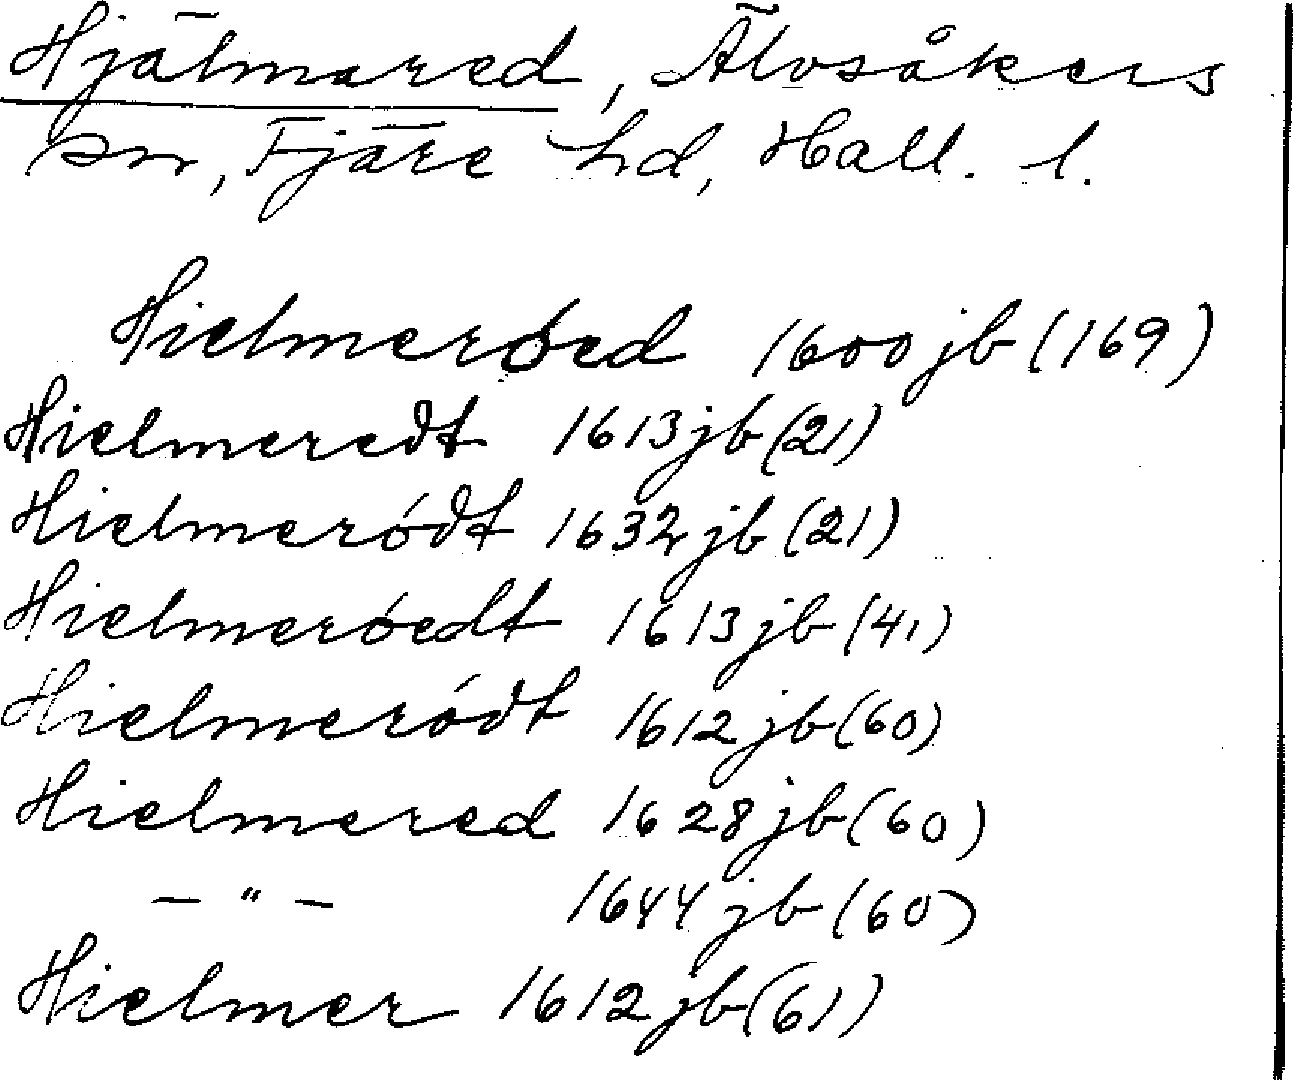 Hjälmared, Älvsåkers
sn, Fjäre hd, Hall. l.
Hielmeróed 1600 jb (169)
Hielmeredt 1613 jb (21)
Hielmeródt 1632 jb (21)
Hielmeróedt 1613 jb (41)
Hielmeródt 1612 jb (60)
Hielmered 1628 jb (60)
– " – 1644 jb (60)
Hielmer 1612 jb (61)